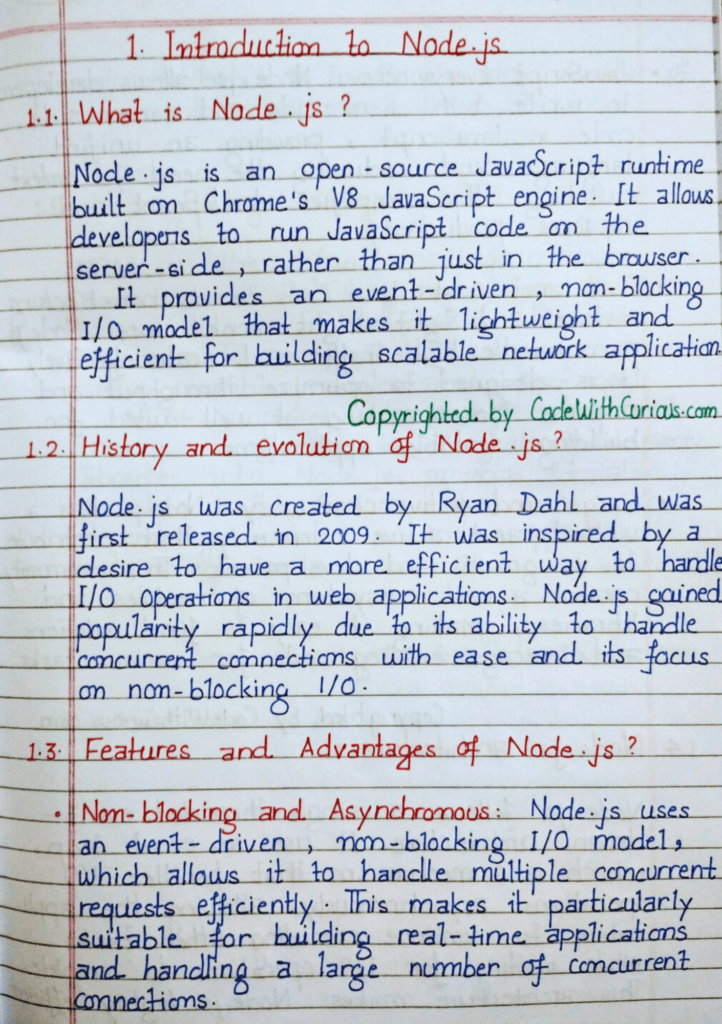 1. Introduction to Node.js
1.1. What is Node.js ?
Node.js is an open-source JavaScript runtime
built on Chrome's V8 JavaScript engine. It allows
developers to run JavaScript code on the
server-side, rather than just in the browser.
It provides an event-driven, non-blocking
I/O model that makes it lightweight and
efficient for building scalable network application.
Copyrighted by CodeWithCurious.com
1.2. History and evolution of Node.js ?
Node.js was created by Ryan Dahl and was
first released in 2009. It was inspired by a
desire to have a more efficient way to handle
I/O operations in web applications. Node.js gained
popularity rapidly due to its ability to handle
concurrent connections with ease and its focus
on non-blocking I/O.
1.3. Features and Advantages of Node.js ?
• Non-blocking and Asynchronous: Node.js uses
an event-driven, non-blocking I/O model,
which allows it to handle multiple concurrent
requests efficiently. This makes it particularly
suitable for building real-time applications
and handling a large number of concurrent
connections.